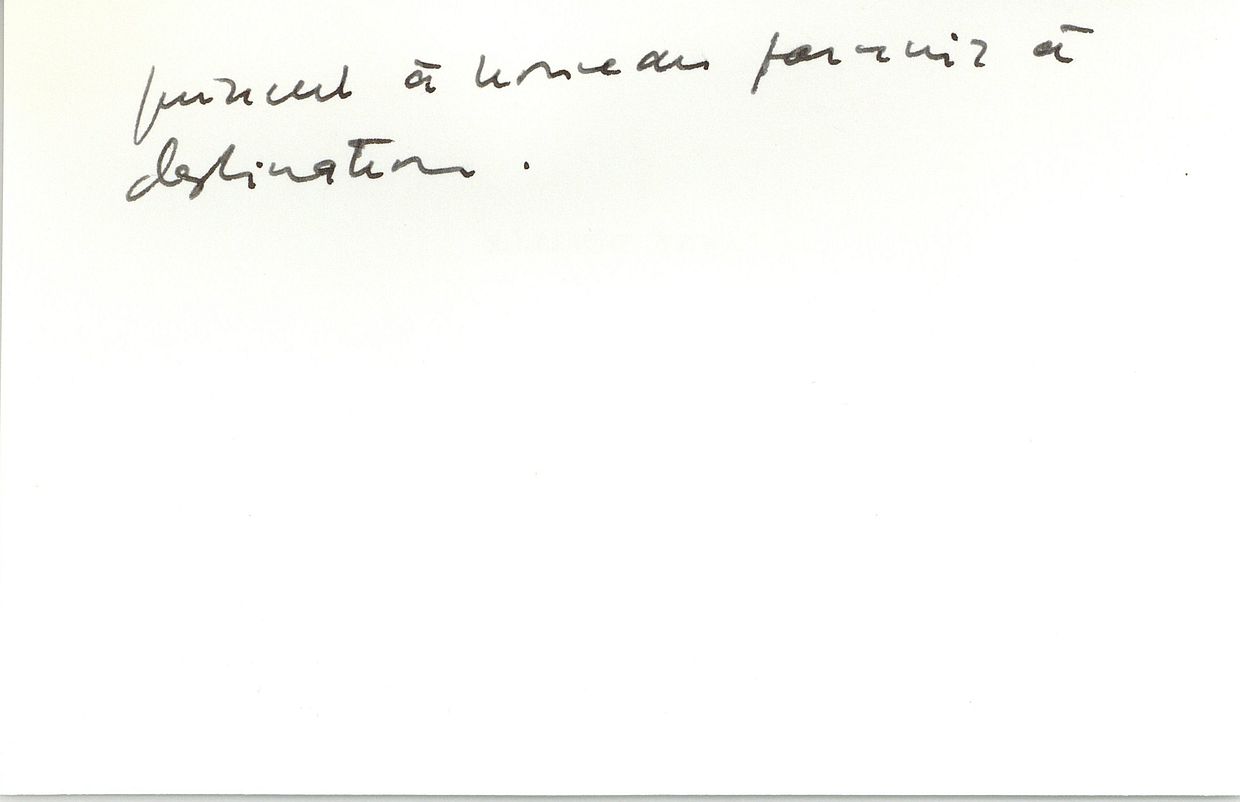 puissent à nouveau parvenir à
destination.